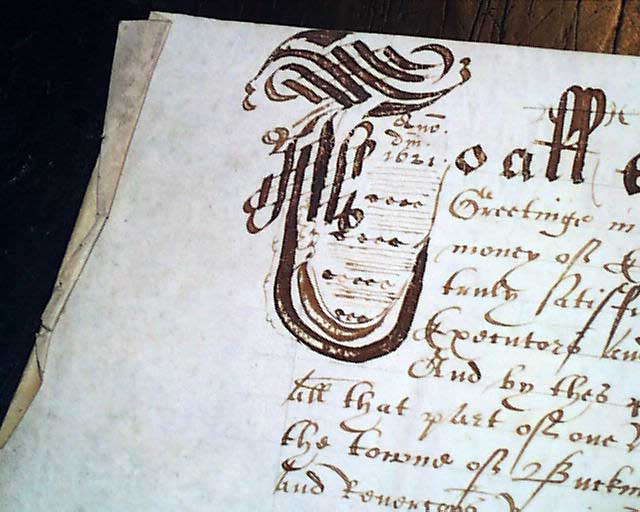 Ano
dm
1621
To all
Greetinge in
money of
truly satisf
Executors and
And by thes p
all that part of one
the towne of Buckm
and Revercons